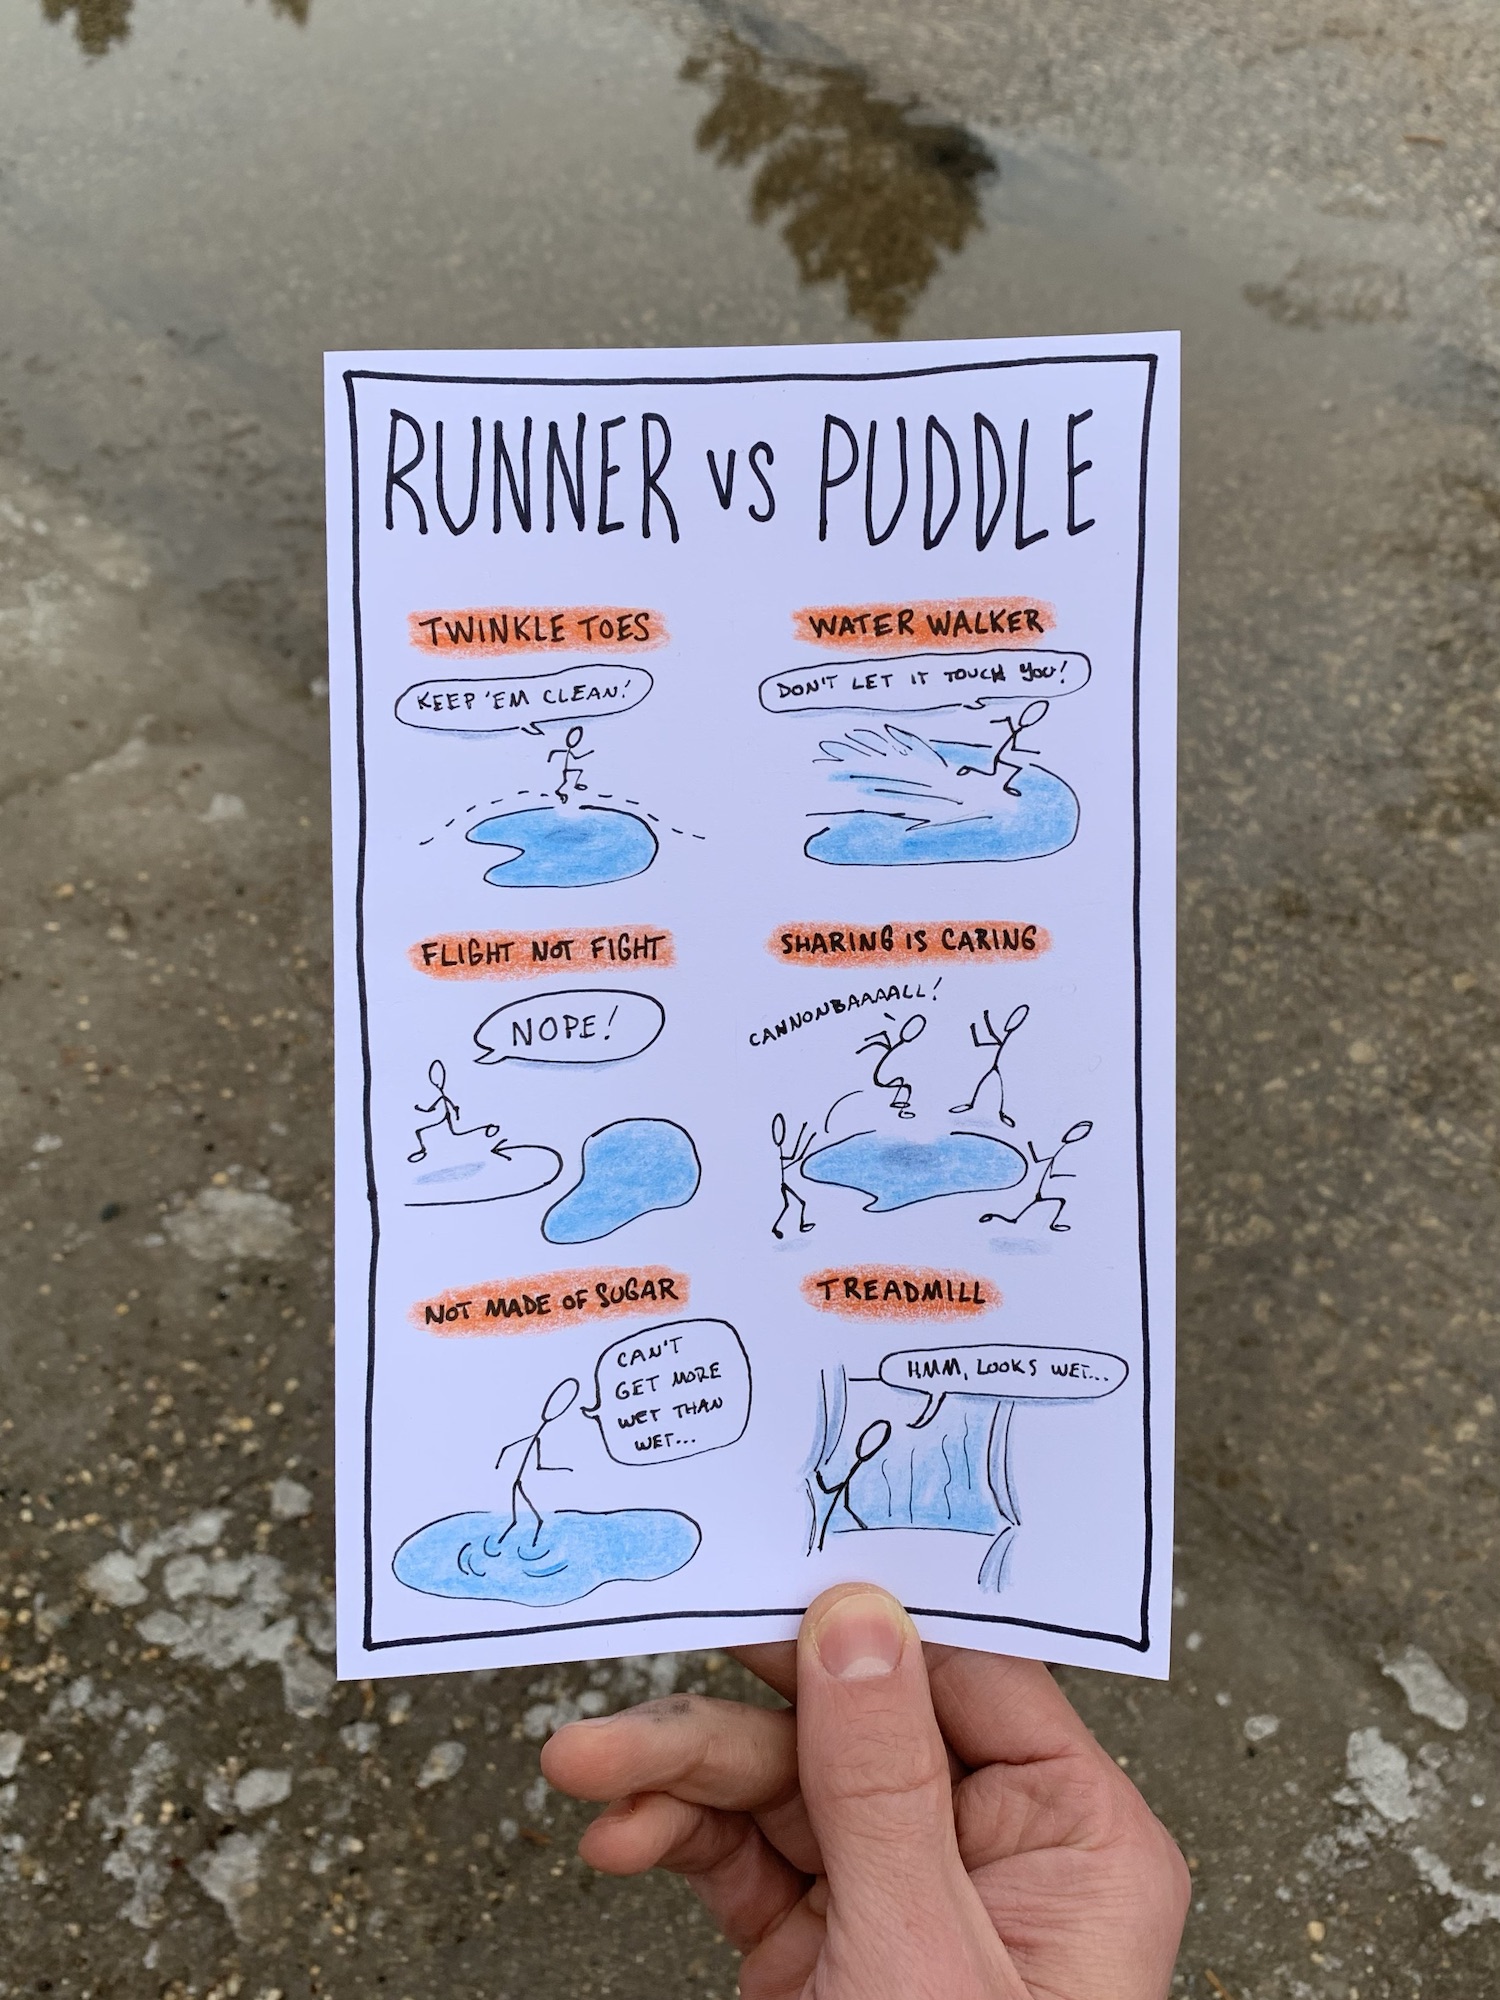 RUNNER VS PUDDLE
TWINKLE TOES
KEEP 'EM CLEAN!
WATER WALKER
DON'T LET IT TOUCH YOU!
FLIGHT NOT FIGHT
NOPE!
SHARING IS CARING
CANNONBAAAALL!
NOT MADE OF SUGAR
CAN'T
GET MORE
WET THAN
WET...
TREADMILL
HMM, LOOKS WET...